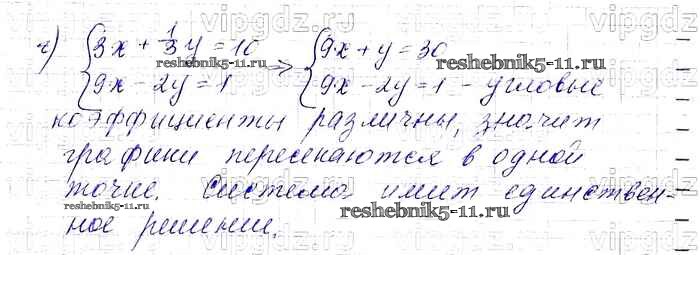 г) { 3x + 1/3 y = 10 => { 9x + y = 30
{ 9x - 2y = 1 { 9x - 2y = 1 - угловые
коэффициенты различны, значит
графики пересекаются в одной
точке. Система имеет единствен-
ное решение.
reshebnik5-11.ru
reshebnik5-11.ru
reshebnik5-11.ru
reshebnik5-11.ru
vipgdz.ru
vipgdz.ru